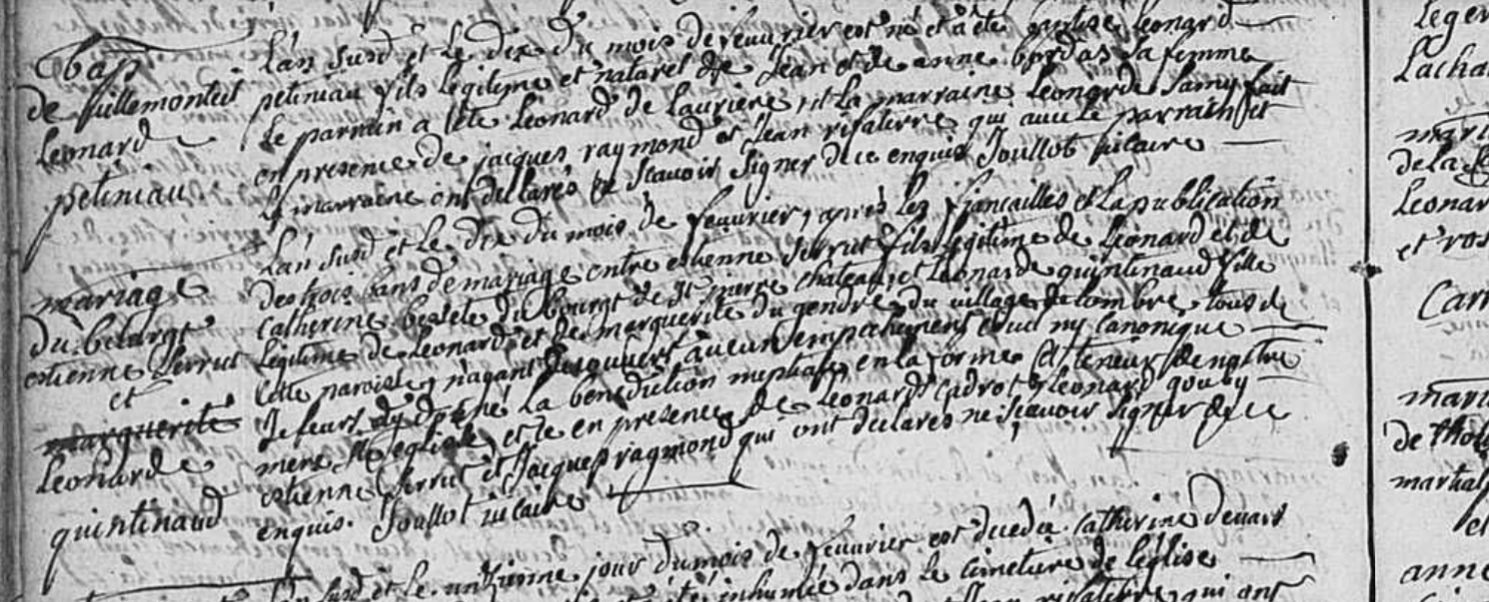 bap
de puillemonteil
Leonard
petiniau
L'an susd et le dix du mois de feuurier est né et a été baptise Leonard
petiniau fils legitime et naturel de Jean et de anne bordas sa femme
Le parrain a été Leonard de Lauriere et La marraine Leonarde Lamy fait
en presence de jacques raymond et Jean rifaterre qui avec Le parrain et
La marraine ont declarés ne scauoir signer de ce enquis Joullot vicaire
mariage
du bourgt
estienne Serrut
et
marguerite
Leonarde
quintinaud
L'an susd et le dix du mois de feuurier, après les fiancailles et La publication
des trois bans de mariage entre estienne Serrut fils legitime de Leonard et de
Catherine du bourgt de St merc chateau, et Leonarde quintinaud fille
legitime de Leonard et de marguerite du gendre du village de Combre tous de
cette paroisse, n'ayant decouvert aucun empechement civil ny Canonique
Je leurs ay donné La benediction nuptialle en la forme et teneur de nostre
mere Ste eglise, et ce en presence de Leonard Cadrot Leonard gouby
estienne Serrut et Jacque raymond qui ont declares ne scauoir signer de ce
enquis. Joullot vicaire
L'an susd et le unzieme jour du mois de feuurier est decedée Catherine
été inhumée dans le cimetiere de l'église
rifaterre qui ont
Leger
Lacha
mari
de la
Leonar
et ros
Carr
mari
de
martial
et
anne